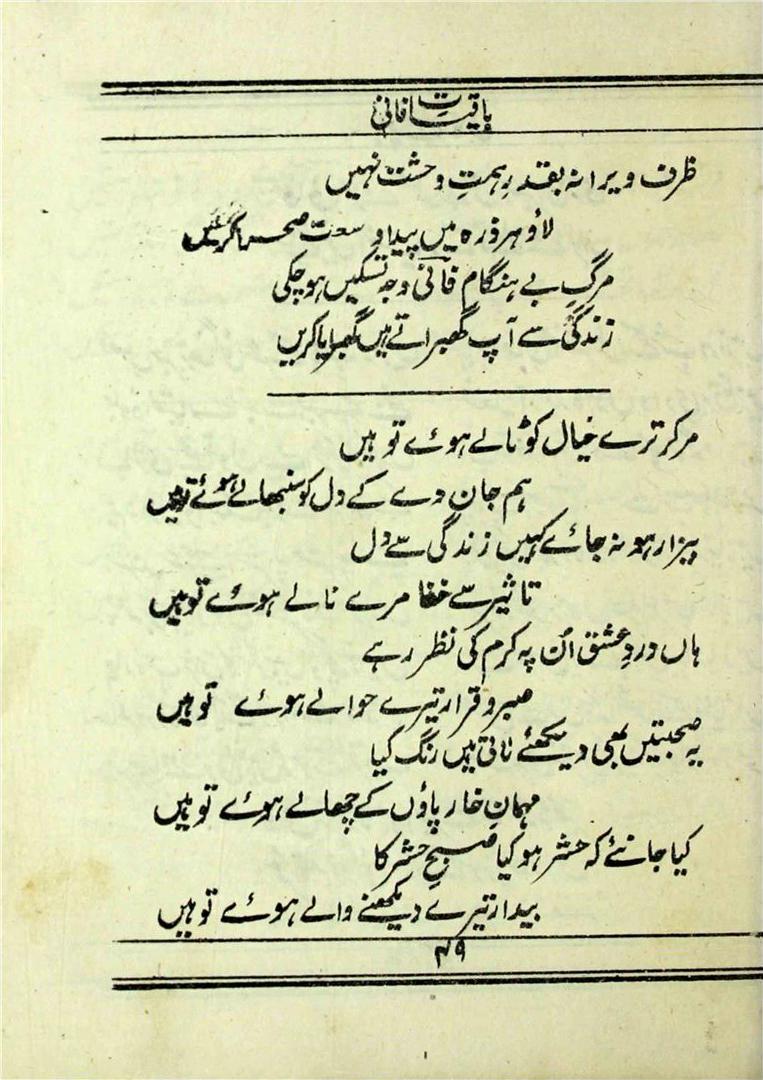 باقیات فانی
ظرف ویرانہ بقدرِ ہمتِ وحشت نہیں
لاؤ ہر ذرہ میں پیدا وسعت صحرا کریں
مرگِ بے ہنگام فانی وجہ تسکیں ہوچکی
زندگی سے آپ گھبراتے ہیں گھبرایا کریں
مرکر ترے خیال کو ٹالے ہوئے تو ہیں
ہم جان دے کے دل کو سنبھالے ہوئے تو ہیں
بیزار ہو نہ جائے کہیں زندگی سے دل
تاثیر سے خفا مرے نالے ہوئے تو ہیں
ہاں دردِ عشق اُن پہ کرم کی نظر رہے
صبر و قرار تیرے حوالے ہوئے تو ہیں
یہ صحبتیں بھی دیکھئے لاتی ہیں رنگ کیا
مہمانِ خار پاؤں کے چھالے ہوئے تو ہیں
کیا جانئے کہ حشر ہو کیا صبحِ حشر کا
بیدار تیرے دیکھنے والے ہوئے تو ہیں
۴۹